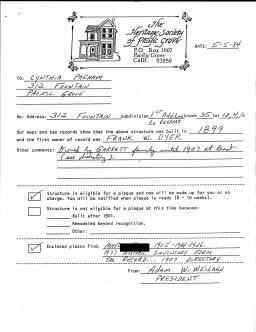 The
Heritage Society
of Pacific Grove
P.O. Box 1007
Pacific Grove
Calif. 93950
DATE: 5-5-84
TO: CYNTHIA PARHAM
312 FOUNTAIN
PACIFIC GROVE
Re: Address: 312 FOUNTAIN Subdivision 1ST Addn block 35 lot
Our maps and tax records show that the above structure was built in 1899
and the first owner of record was FRANK W. DYER
Other comments: Owned by GARRETT family until 1907 at least
(see directory).
Structure is eligible for a plaque and one will be made up for you at no
charge. You will be notified when plaque is ready (8 - 10 weeks).
Structure is not eligible for a plaque at this time because:
Built after 1901.
Remodeled beyond recognition.
Other:
Enclosed please find: MAPS 1905-1914-1926.
1977 HISTORIC INVENTORY FORM
TAX RECORD... 1907 DIRECTORY
From: ADAM W. WEILAND
PRESIDENT